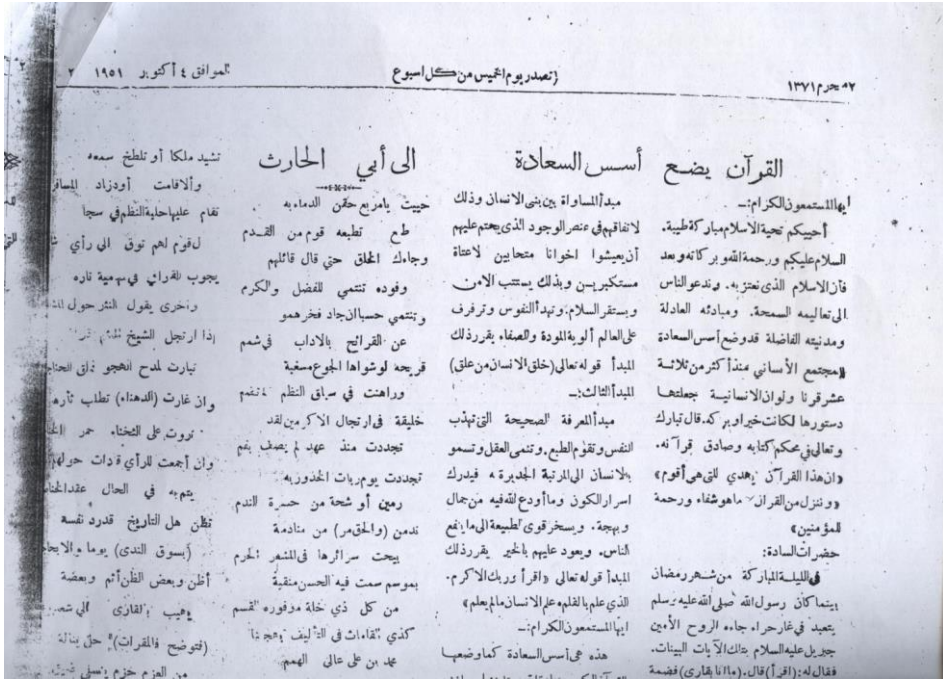 ٢ محرم ١٣٧١
(تصدر يوم الخميس من كل اسبوع
الموافق ٤ أكتوبر ١٩٥١ ٢
القرآن يضع أسس السعادة
أيها المستمعون الكرام :ــ
أحييكم تحية الاسلام مباركة طيبة.
السلام عليكم ورحمة الله وبركاته وبعد
فان الاسلام الذى نعتز به. وندعو الناس
الى تعاليمه السمحة. ومبادئه العادلة
ومدنيته الفاضلة قد وضع أسس السعادة
مجتمع الأساني منذ أكثر من ثلاثة
عشر قرنا ولو ان الانسانية جعلتها
دستورها لكانت خير او بركه. قال تبارك
وتعالى فى محكم كتابه وصادق قرآنه.
«ان هذا القرآن يهدي للتى هى أقوم»
«وننزل من القرآن ما هو شفاء ورحمة
للمؤمنين»
حضرات السادة:
فى الليلة المباركة من شهر رمضان
بينما كان رسول الله صلى الله عليه وسلم
يتعبد في غار حراء جاءه الروح الأمين
جبريل عليه السلام بتلك الآيات البينات.
فقال له: (اقرأ) قال. (ما انا بقارى) فضمة
مبدأ المساواة بين بنى الانسان وذلك
لاتفاقهم فى عنصر الوجود الذى يحتم عليهم
أن يعيشوا اخوانا متحابين لاعتاة
مستكبرين وبذلك يستتب الامن
ويستقر السلام: وتهدأ النفوس وترفرف
على العالم ألوية المودة والصفاء يقرر ذلك
المبدأ قوله تعالى (خلق الانسان من علق)
المبدأ الثالث:ــ
مبدأ المعرفة الصحيحة التى تهذب
النفس وتقوم الطبع. وتنمى العقل وتسمو
بالانسان الى المرتبة الجديرة به فيدرك
اسرار الكون وما أودع الله فيه من جمال
وبهجة. ويسخر قوى الطبيعة الى ما ينفع
الناس. ويعود عليهم بالخير يقرر ذلك
المبدأ قوله تعالى «اقرأ وربك الاكرم.
الذي علم بالقلم علم الانسان مالم يعلم»
ايها المستمعون الكرام:ــ
هذه هى أسس السعادة كما وضعها
الى أبي الحارث
حييت يامربع حقن الدماء به
طبع تطبعه قوم من القدم
وجاءك الخلق حتي قال قائلهم
وفوده تنتمي للفضل والكرم
وتنتمي حسبا ان جاد فخر همو
عن القرائح بالاداب في شمم
قريحه لو شواها الجوع مسغبة
وراهنت في سباق النظم
خليقة فى ارتجال الاكرمين لقد
تجددت منذ عهد لم يصف بفم
تجددت يوم ربات الخدور به
رهين أو شحة من حسرة الندم
ندمن (والحق مر) من منادمة
يبحث سرائرها فى المشعر الحرم
بموسم سمت فيه الحسن منقبة
من كل ذي خلة موفوره القسم
كذي لقاءات فى التأليف
محمد بن علي عالي الهمم
تشيد ملكا أو تلطخ سمعه
والا قامت أو دزاد
تقام عليها حلية النظم في سجا
لقوم لهم توق الى رأي
يجوب القرائن في سهمية تاره
واخرى يقول النثر حول
اذا ارتجل الشيخ
تبارت لمدح الهجو
وان غارت (الدهناء) تطلب
ثروت على الشحناء حمر
وان أجمعت للرأي قادات حولهم
يتم به في الحال عقد
تظن هل التاريخ قدرد نفسه
(بسوق الندى) يوما
أظن وبعض الظن أثم وبعضة
يهيب بالقارى الى
(فتوضح فالمقرات)
من العزم حزم